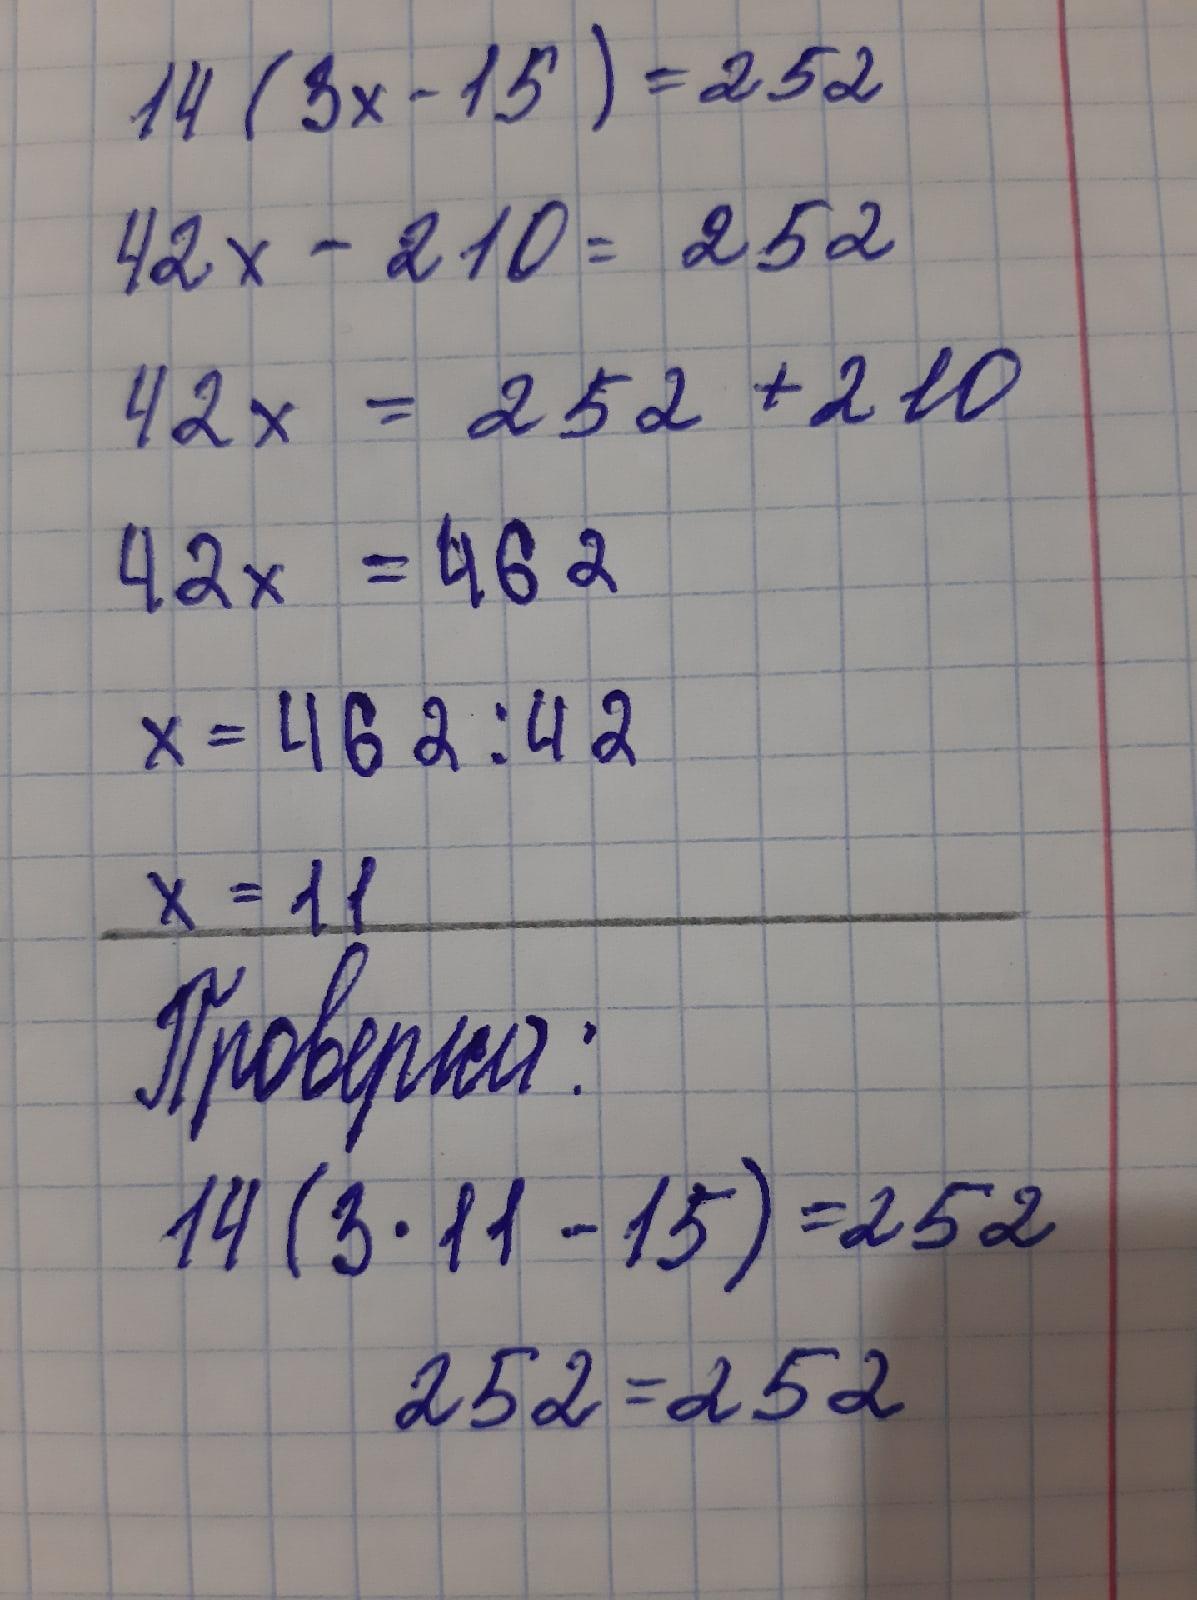 14 (3x - 15) = 252
42x - 210 = 252
42x = 252 + 210
42x = 462
x = 462 : 42
x = 11
Проверка:
14 (3 · 11 - 15) = 252
252 = 252